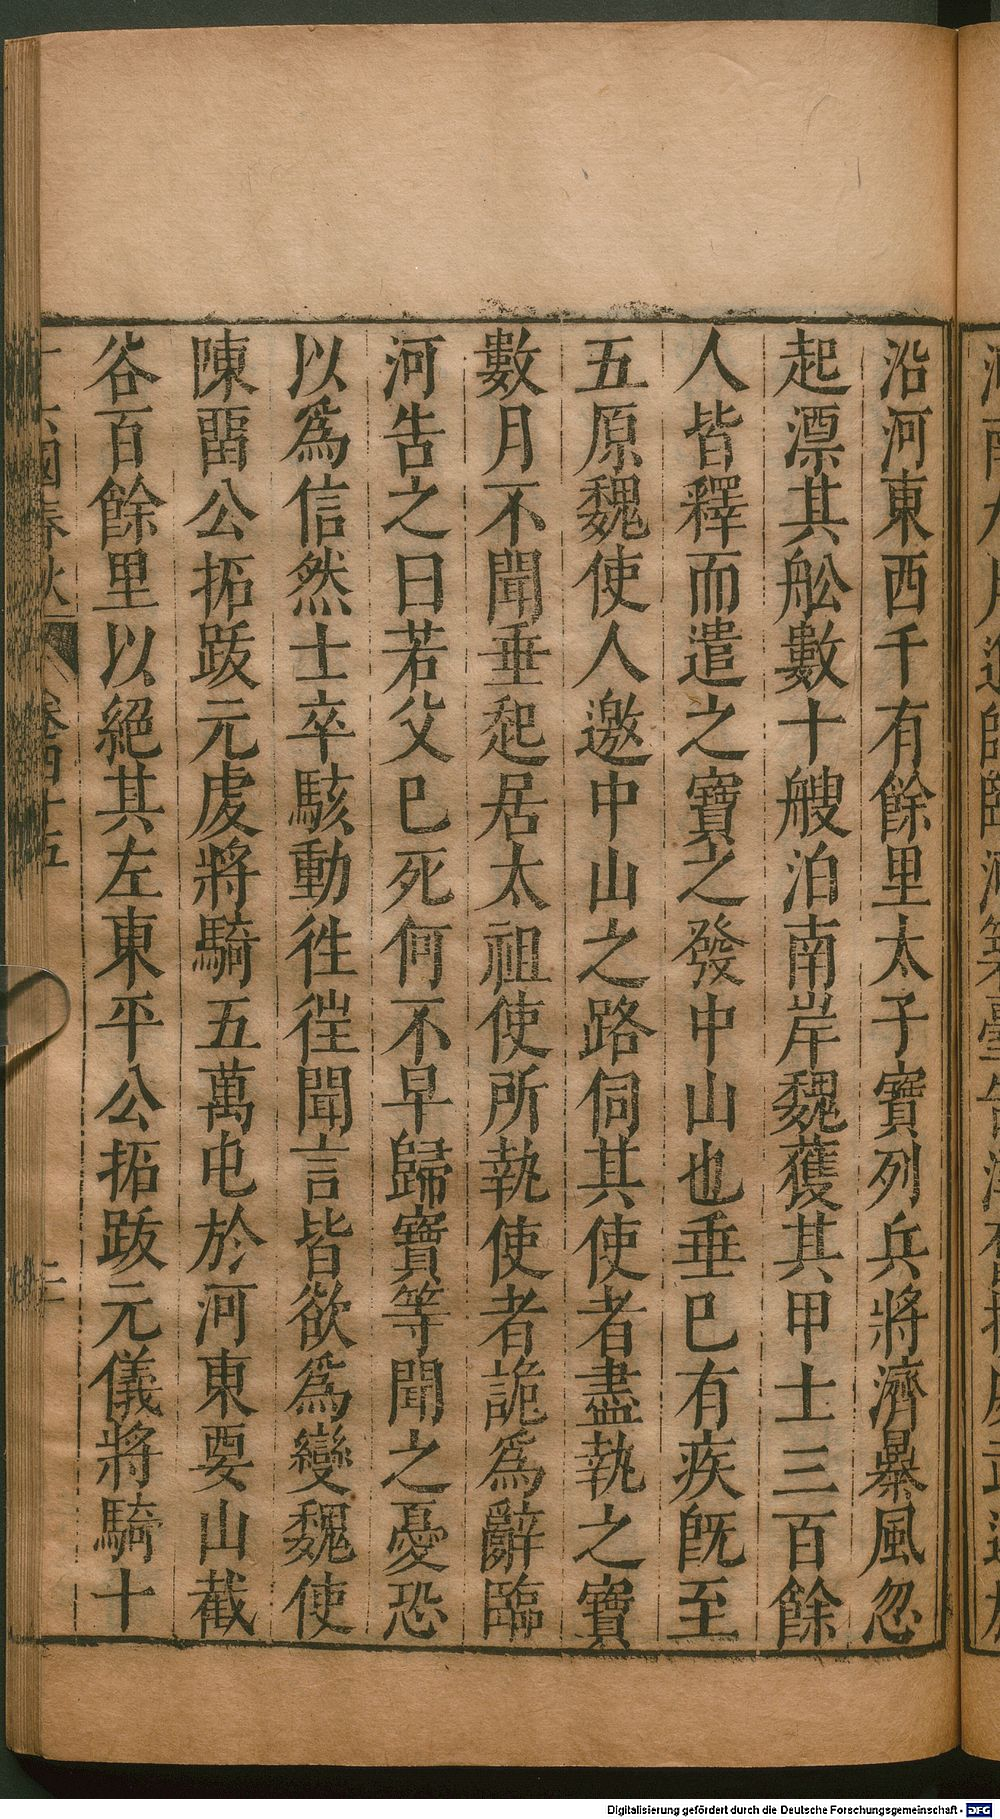 沿河東西千有餘里太子寶列兵將濟暴風忽
起漂其舩數十艘泊南岸魏獲其甲士三百餘
人皆釋而遣之寶之發中山也垂巳有疾旣至
五原魏使人邀中山之路伺其使者盡執之寶
數月不聞垂起居太祖使所執使者詭爲辭臨
河告之曰若父巳死何不早歸寶等聞之憂恐
以爲信然士卒駭動徃徃聞言皆欲爲變魏使
陳畱公拓跋元虔將騎五萬屯於河東要山截
谷百餘里以絕其左東平公拓跋元儀將騎十
十六國春秋 卷四十五
Digitalisierung gefördert durch die Deutsche Forschungsgemeinschaft - DFG